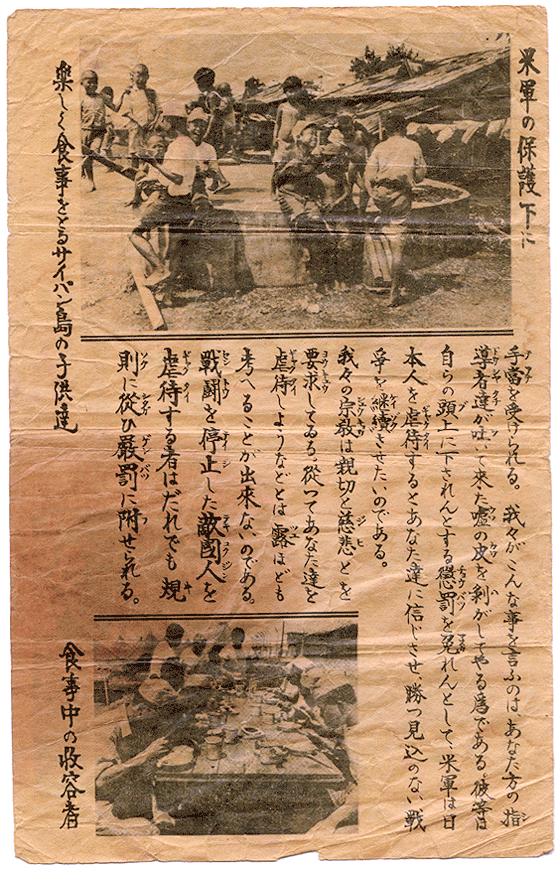 米軍の保護下に
楽しく食事をとるサイパン島の子供達
手當を受けられる。我々がこんな事を言ふのは、あなた方の指
導者達が吐いて来た嘘の皮を剥がしてやる為である。彼等は
自らの頭上に下されんとする懲罰を免れんとして、米軍は日
本人を虐待するとあなた達に信じさせ、勝つ見込のない戦
爭を継續させたいのである。
我々の宗教は親切と慈悲とを
要求してゐる。従つてあなた達を
虐待しようなどとは露ほども
考へることが出来ないのである。
戦闘を停止した敵國人を
虐待する者はだれでも規
則に従ひ厳罰に附せられる。
食事中の收容者